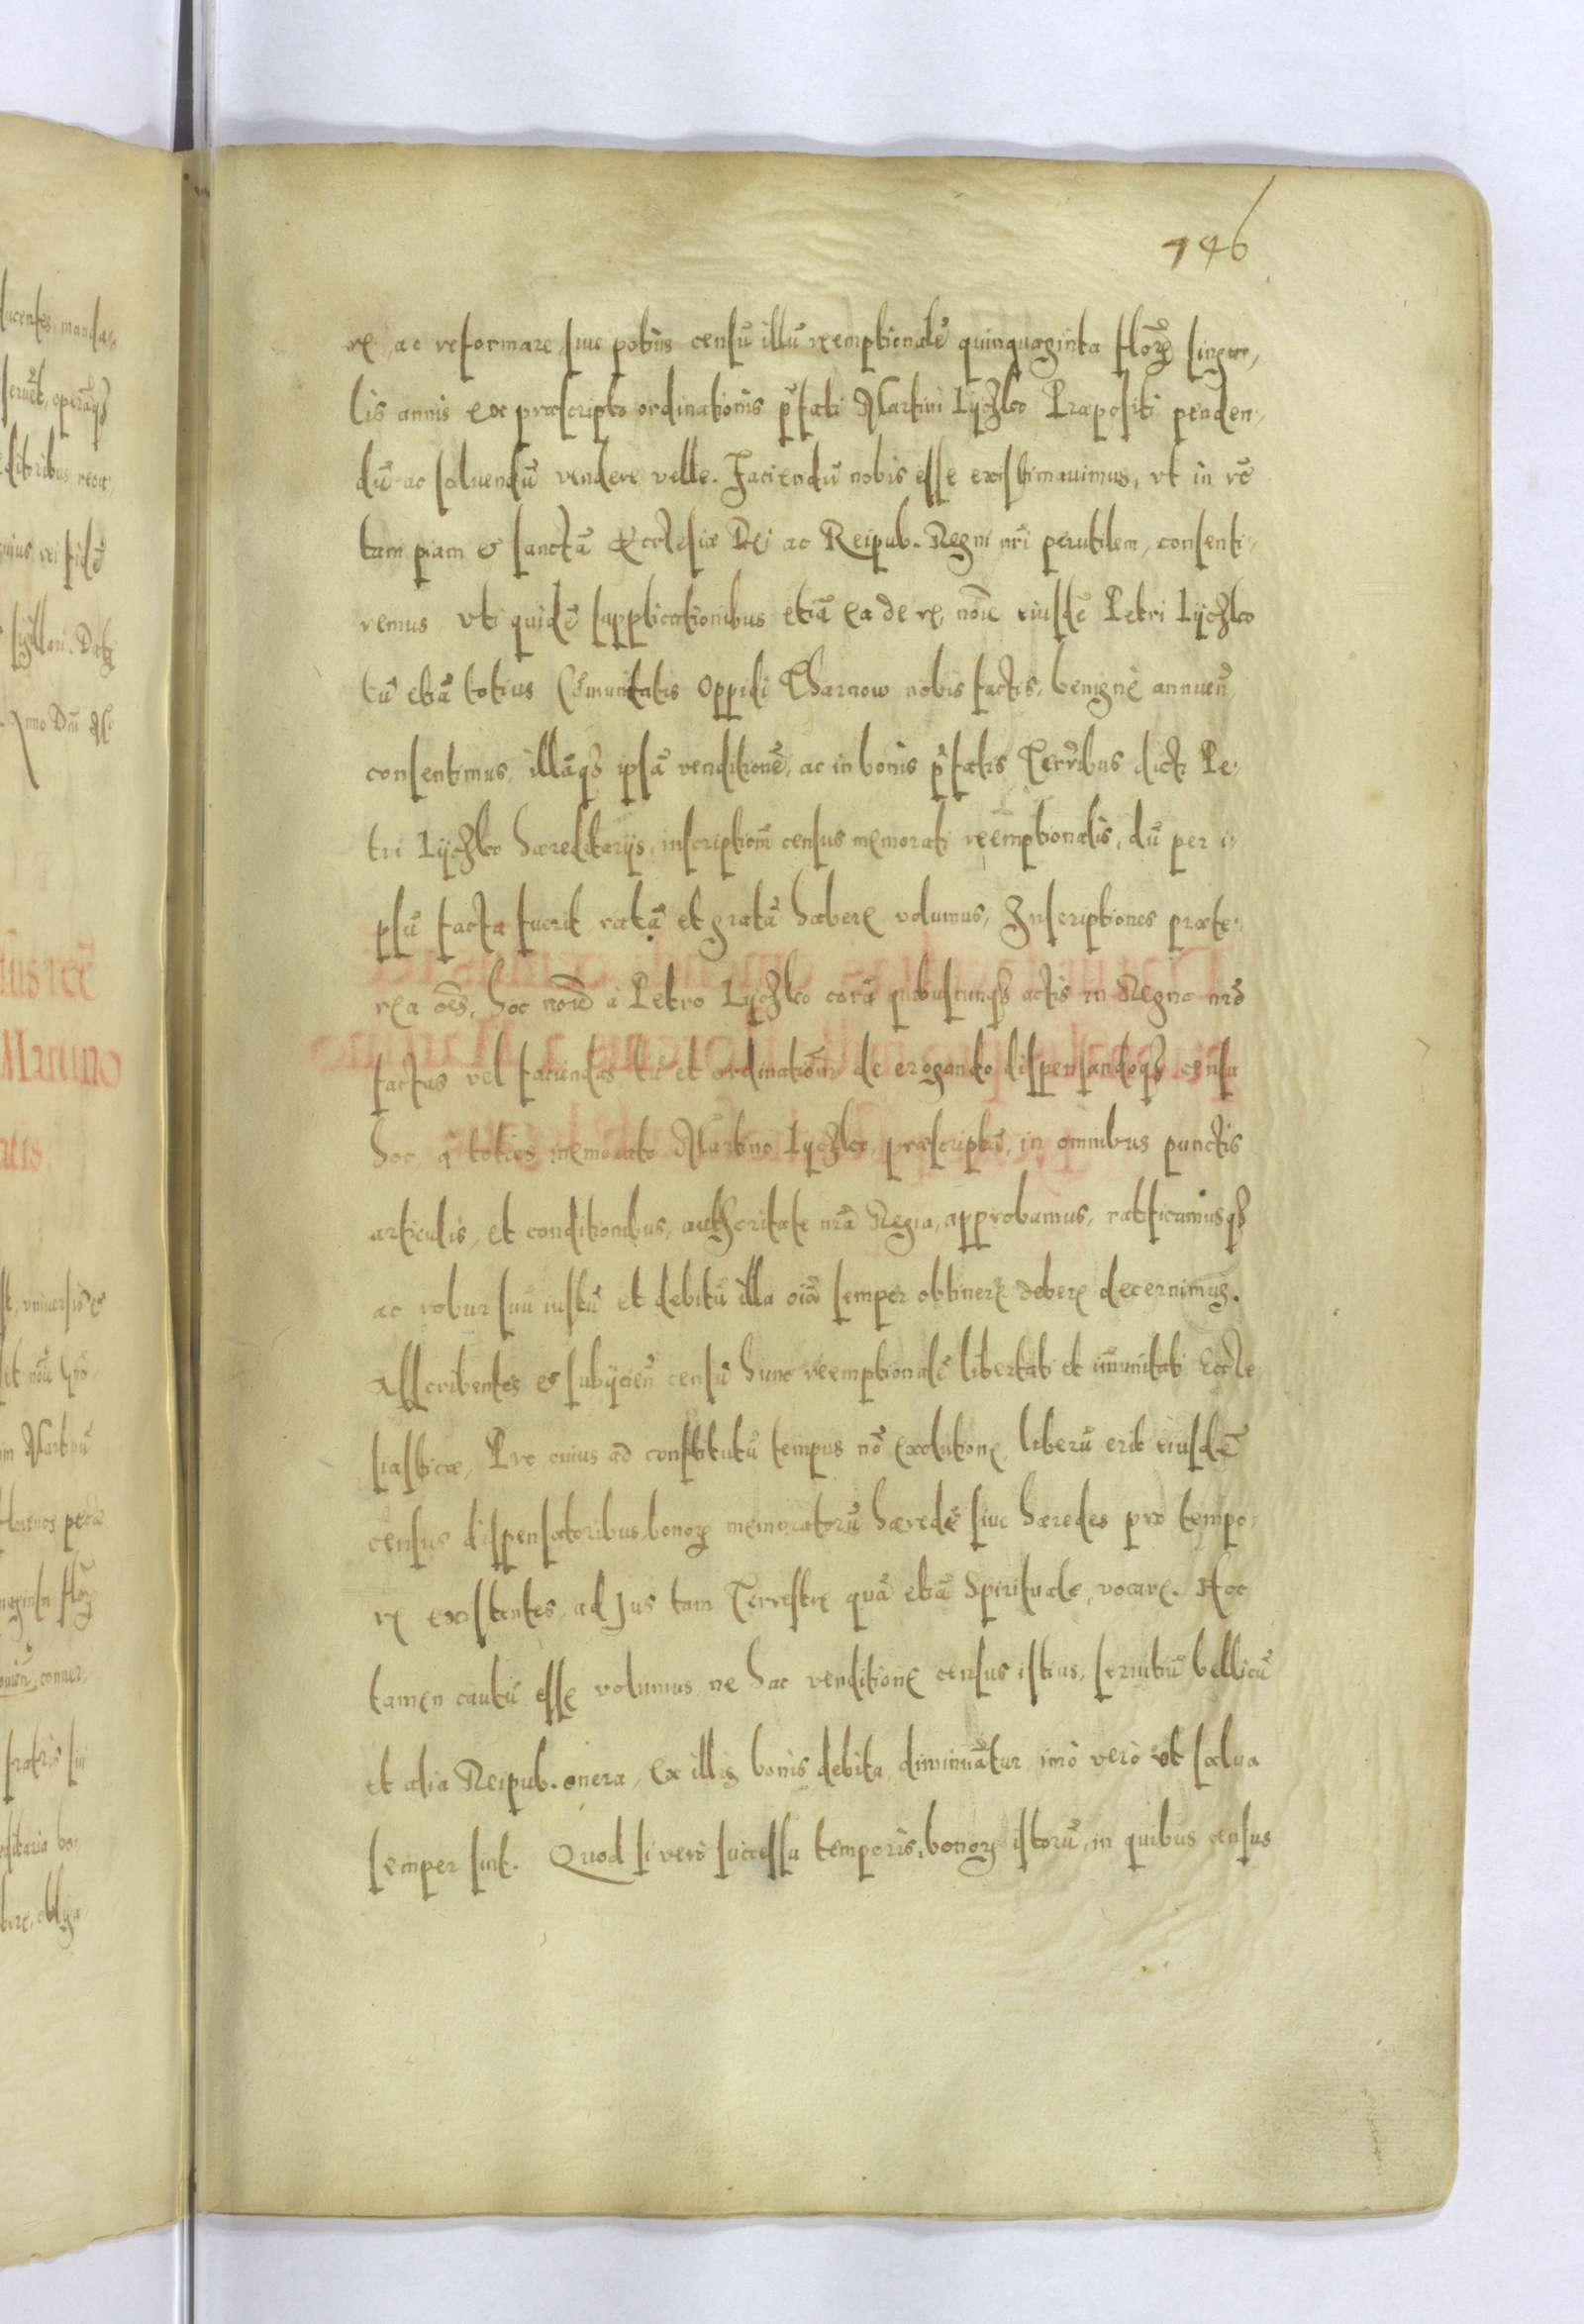 146
re, ac reformare, siue potiùs censũ illũ reemptionalẽ quinquaginta florꝝ singu-
lis annis ex præscripto ordinationis p̃fati Martini Lyczko Præpositi penden-
dũ ac soluendũ vendere velle. Faciendũ nobis esse existimauimus, vt in rẽ
tam piam & sanctã Ecclesiæ Dei ac Reipub. Regni nr̃i perutilem, consenti-
remus Vti quidẽ supplicationibus etiã ea de re, noĩe eiusdẽ Petri Lyczko
tũ etiã totius Cõmunitatis Oppidi Tharnow nobis factis, benignè annuen̄
consentimus, illãqȝ ipsã venditionẽ, ac in bonis p̃fatis Terr̃ibus dicti Pe-
tri Lyczko hæreditarijs, inscriptionẽ census memorati reemptionalis, dũ per i-
psũ facta fuerit ratã et gratã habere volumus, Inscriptiones præte-
rea oẽs, hoc noĩe à Petro Lyczko corã quibuscunqȝ actis in Regno nr̃o
factas vel faciendas tũ et ordinationẽ de erogando dispensandoqȝ censu
hoc, à toties memorato Martino Lyczko, præscriptã, in omnibus punctis
articulis, et conditionibus, authoritate nr̃a Regia, approbamus, ratificamusqȝ
ac robur suũ iustũ et debitũ illa oĩa semper obtinere debere decernimus.
Asscribentes & subijcien̄ censũ hunc reemptionalẽ libertati et im̃unitati Eccle-
siasticæ, Pro cuius ad constitutũ tempus nõ exolutione, liberũ erit eiusdẽ
census dispensatoribus, bonorꝝ memoratorũ hæredẽ siue hæredes pro tempo-
re existentes, ad Jus tam Terrestre quã etiã Spirituale, vocare. Hoc
tamen cautũ esse volumus ne hac venditione census istius, seruitiũ bellicũ
et alia Reipub. onera, ex illis bonis debita diminuãtur imò verò vt salua
semper sint. Quod si verò successu temporis, bonorꝝ istorũ, in quibus census